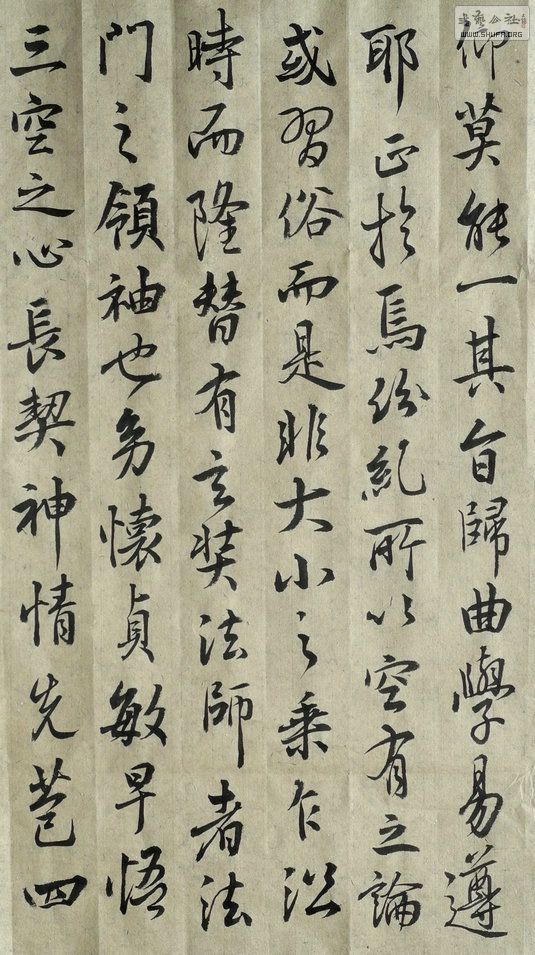 仰莫能一其旨歸曲學易遵
耶正於焉紛糺所以空有之論
或習俗而是非大小之乘乍沿
時而隆替有玄奘法師者法
門之領袖也幼懷貞敏早悟
三空之心長契神情先苞四
書藝公社
WWW.SHUFA.ORG